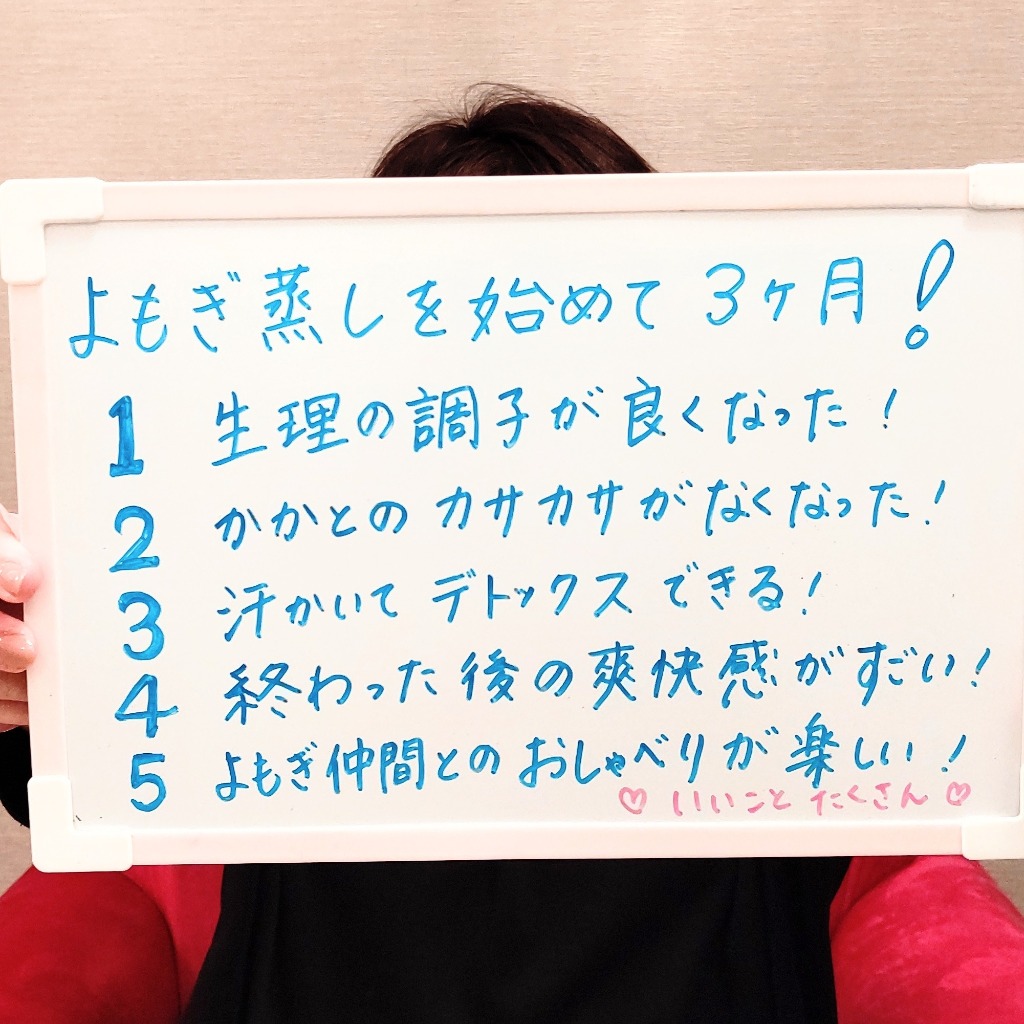 よもぎ蒸しを始めて3ヶ月!
1 生理の調子が良くなった!
2 かかとのカサカサがなくなった!
3 汗かいてデトックスできる!
4 終わった後の爽快感がすごい!
5 よもぎ仲間とのおしゃべりが楽しい!
♡いいことたくさん♡